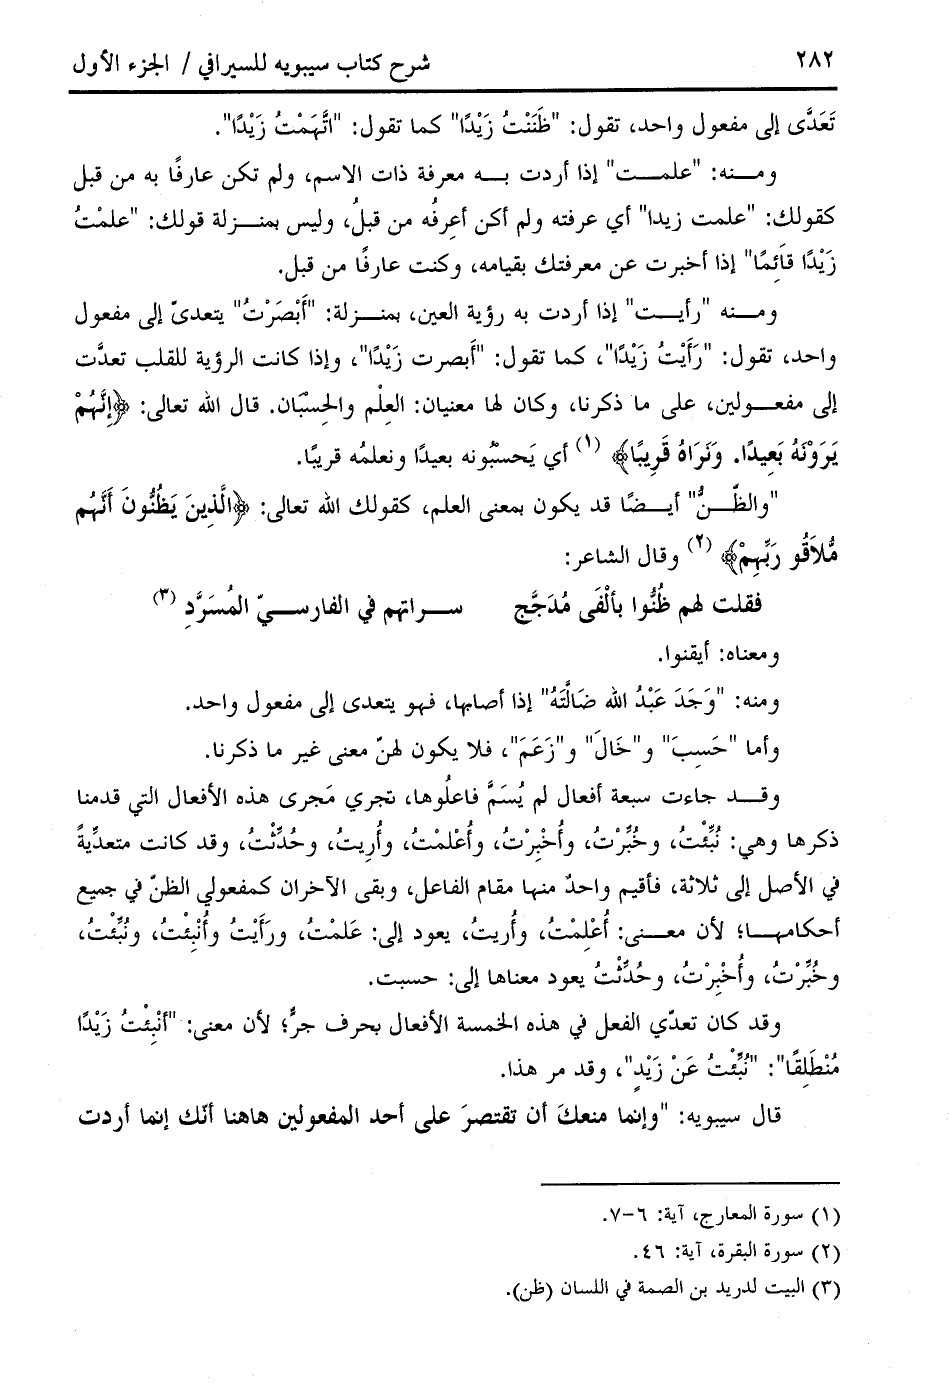 ٢٨٢ شرح كتاب سيبويه للسيرافي / الجزء الأول
تَعَدَّى إلى مفعول واحد، تقول: "ظَنَنْتُ زَيْدًا" كما تقول: "اتَّهَمْتُ زَيْدًا".
ومنه: "علمت" إذا أردت به معرفة ذات الاسم، ولم تكن عارفًا به من قبل
كقولك: "علمت زيدا" أي عرفته ولم أكن أعرِفُه من قبلُ، وليس بمنزلة قولك: "علمْتُ
زَيْدًا قَائِمًا" إذا أخبرت عن معرفتك بقيامه، وكنت عارفًا من قبل.
ومنه "رأيت" إذا أردت به رؤية العين، بمنزلة: "أَبْصَرْتُ" يتعدىّ إلى مفعول
واحد، تقول: "رَأَيْتُ زَيْدًا"، كما تقول: "أَبصرت زَيْدًا"، وإذا كانت الرؤية للقلب تعدَّت
إلى مفعولين، على ما ذكرنا، وكان لها معنيان: العِلْم والحِسْبَان. قال الله تعالى: ﴿إِنَّهُمْ
يَرَوْنَهُ بَعِيدًا. وَنَرَاهُ قَرِيبًا﴾ (١) أي يَحسبُونه بعيدًا ونعلمُه قريبًا.
"والظّنُّ" أيضًا قد يكون بمعنى العلم، كقولك الله تعالى: ﴿الَّذِينَ يَظُنُّونَ أَنَّهُم
مُّلاَقُو رَبِّهِمْ﴾ (٢) وقال الشاعر:
فقلت لهم ظُنُّوا بأَلْفَى مُدَجَّج سراتهم في الفارسيّ المُسَرَّدِ (٣)
ومعناه: أيقنوا.
ومنه: "وَجَدَ عَبْدُ الله ضَالَّتَهُ" إذا أصابها، فهو يتعدى إلى مفعول واحد.
وأما "حَسِبَ" و"خَالَ" و"زَعَمَ"، فلا يكون لهنّ معنى غير ما ذكرنا.
وقد جاءت سبعة أفعال لم يُسَمَّ فاعلُوها، تجري مَجرى هذه الأفعال التي قدمنا
ذكرها وهي: نُبِّئْتُ، وخُبِّرْتُ، وأُخْبِرْتُ، وأُعْلمْتُ، وأُريتُ، وحُدِّثْتُ، وقد كانت متعدِّيةً
في الأصل إلى ثلاثة، فأقيم واحدٌ منها مقام الفاعل، وبقى الآخران كمفعولي الظنّ في جميع
أحكامها؛ لأن معنى: أُعْلِمْتُ، وأُريتُ، يعود إلى: عَلمْتُ، ورَأَيْتُ وأُنْبِئْتُ، ونُبِّئْتُ،
وخُبِّرْتُ، وأُخْبِرْتُ، وحُدِّثْتُ يعود معناها إلى: حسبت.
وقد كان تعدّي الفعل في هذه الخمسة الأفعال بحرف جرٍّ؛ لأن معنى: "أنْبِئتُ زَيْدًا
مُنْطَلِقًا": "نُبِّئْتُ عَنْ زَيْدٍ"، وقد مر هذا.
قال سيبويه: "وإنما منعكَ أن تقتصرَ على أحد المفعولين هاهنا أنّك إنما أردت
(١) سورة المعارج، آية: ٦-٧.
(٢) سورة البقرة، آية: ٤٦.
(٣) البيت لدريد بن الصمة في اللسان (ظن).